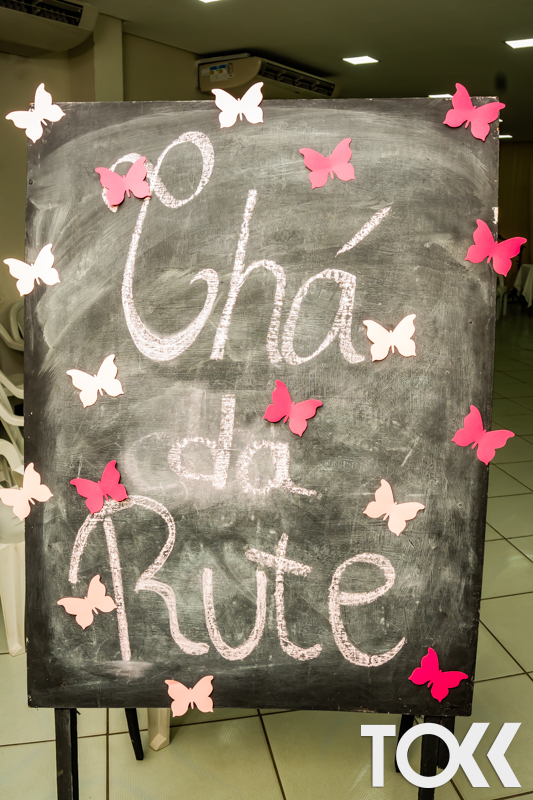 Chá
da
Rute
TOKK